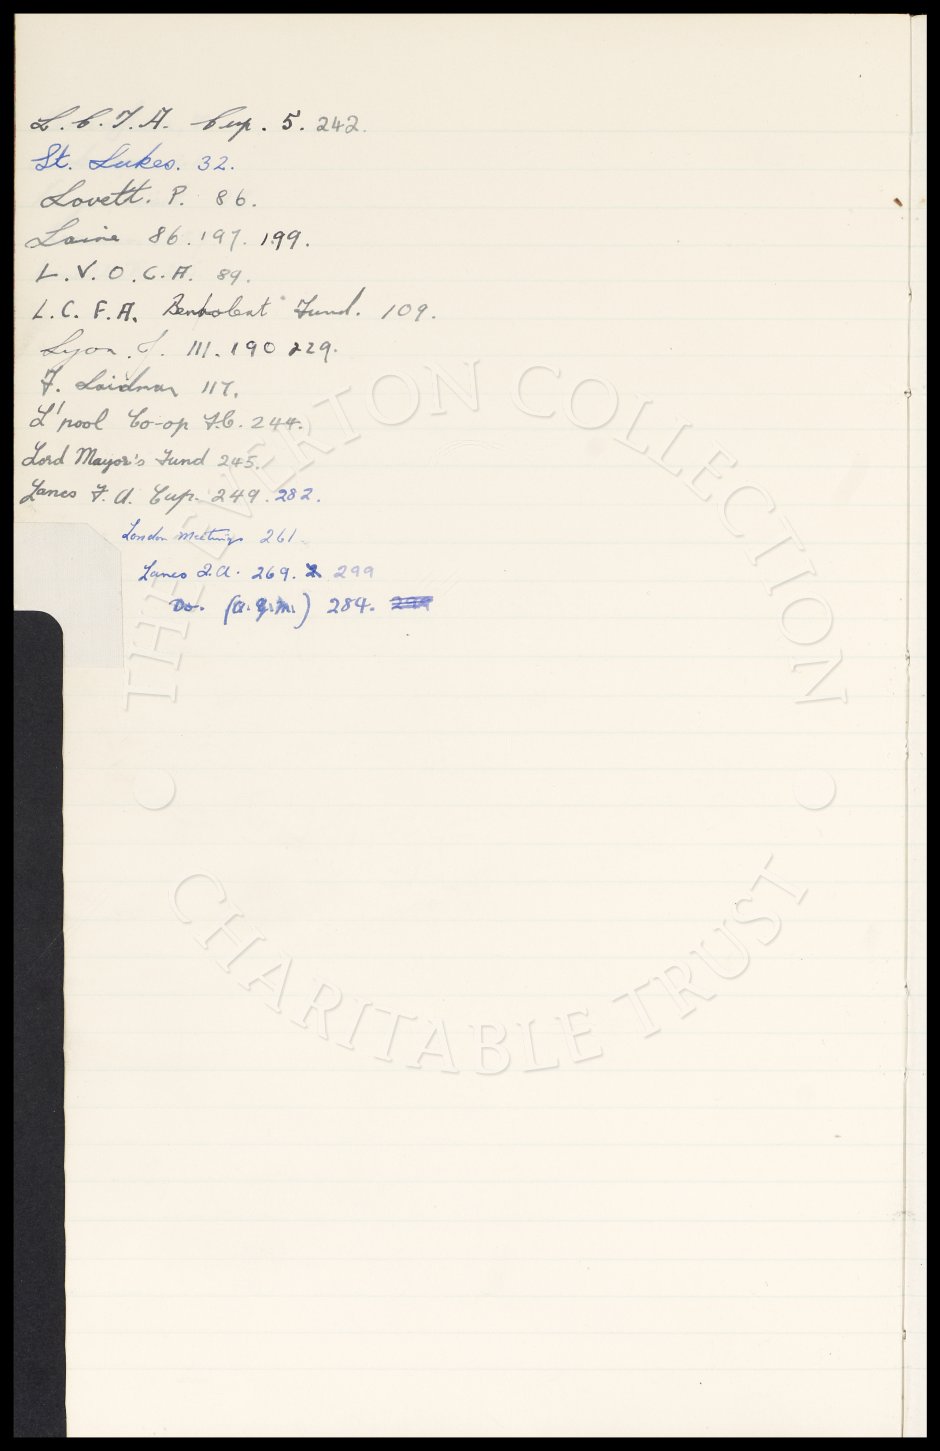 L.C.F.A. Cup. 5. 242.
St. Lukes. 32.
Lovett. P. 86.
Laine 86. 197. 199.
L.V.O.C.A. 89.
L.C.F.A. Benholent Fund. 109.
Lyon. J. 111. 190 229.
F. Laidman 117.
L'pool Co-op F.C. 244.
Lord Mayor's Fund 245.
Lancs F.A. Cup. 249. 282.
London Meetings 261.
Lancs F.A. 269. 299
Do. (A.G.M.) 284. 299
THE EVERTON COLLECTION
CHARITABLE TRUST